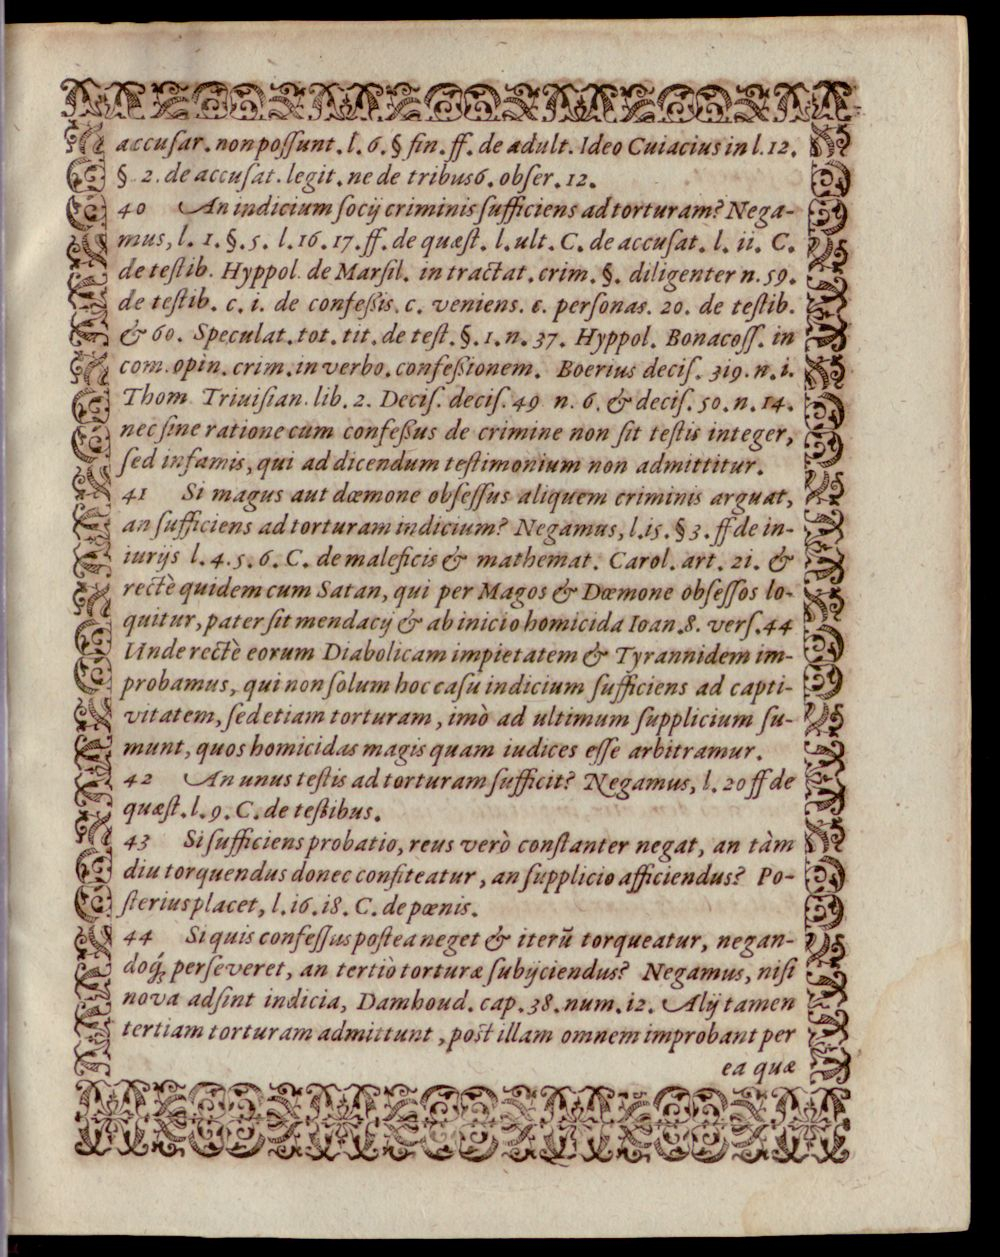 accusar. non possunt. l. 6. § fin. ff. de adult. Ideo Cuiacius in l. 12.
§ 2. de accusat. legit. ne de tribus 6. obser. 12.
40 An indicium socij criminis sufficiens ad torturam? Nega-
mus, l. 1. §. 5. l. 16. 17. ff. de quæst. l. ult. C. de accusat. l. ii. C.
de testib. Hyppol. de Marsil. in tractat. crim. §. diligenter n. 59.
de testib. c. i. de confeßis. c. veniens. e. personas. 20. de testib.
& 60. Speculat. tot. tit. de test. §. 1. n. 37. Hyppol. Bonacoss. in
com. opin. crim. in verbo. confeßionem. Boerius decis. 319. n. i.
Thom Trivisian. lib. 2. Decis. decis. 49 n. 6. & decis. 50. n. 14.
nec sine ratione cum confeßus de crimine non sit testis integer,
sed infamis, qui ad dicendum testimonium non admittitur.
41 Si magus aut dæmone obsessus aliquem criminis arguat,
an sufficiens ad torturam indicium? Negamus, l. 15. § 3. ff de in-
iurijs l. 4. 5. 6. C. de maleficis & mathemat. Carol. art. 21. &
rectè quidem cum Satan, qui per Magos & Dæmone obsessos lo-
quitur, pater sit mendacij & ab inicio homicida Ioan. 8. vers. 44
Unde rectè eorum Diabolicam impietatem & Tyrannidem im-
probamus, qui non solum hoc casu indicium sufficiens ad capti-
vitatem, sed etiam torturam, imò ad ultimum supplicium su-
munt, quos homicidas magis quam iudices esse arbitramur.
42 An unus testis ad torturam sufficit? Negamus, l. 20 ff de
quæst. l. 9. C. de testibus.
43 Si sufficiens probatio, reus verò constanter negat, an tàm
diu torquendus donec confiteatur, an supplicio afficiendus? Po-
sterius placet, l. 16. 18. C. de pœnis.
44 Si quis confessus postea neget & iterũ torqueatur, negan-
doq́; perseveret, an tertiò torturæ subijciendus? Negamus, nisi
nova adsint indicia, Damhoud. cap. 38. num. 12. Alij tamen
tertiam torturam admittunt, post illam omnem improbant per
ea quæ